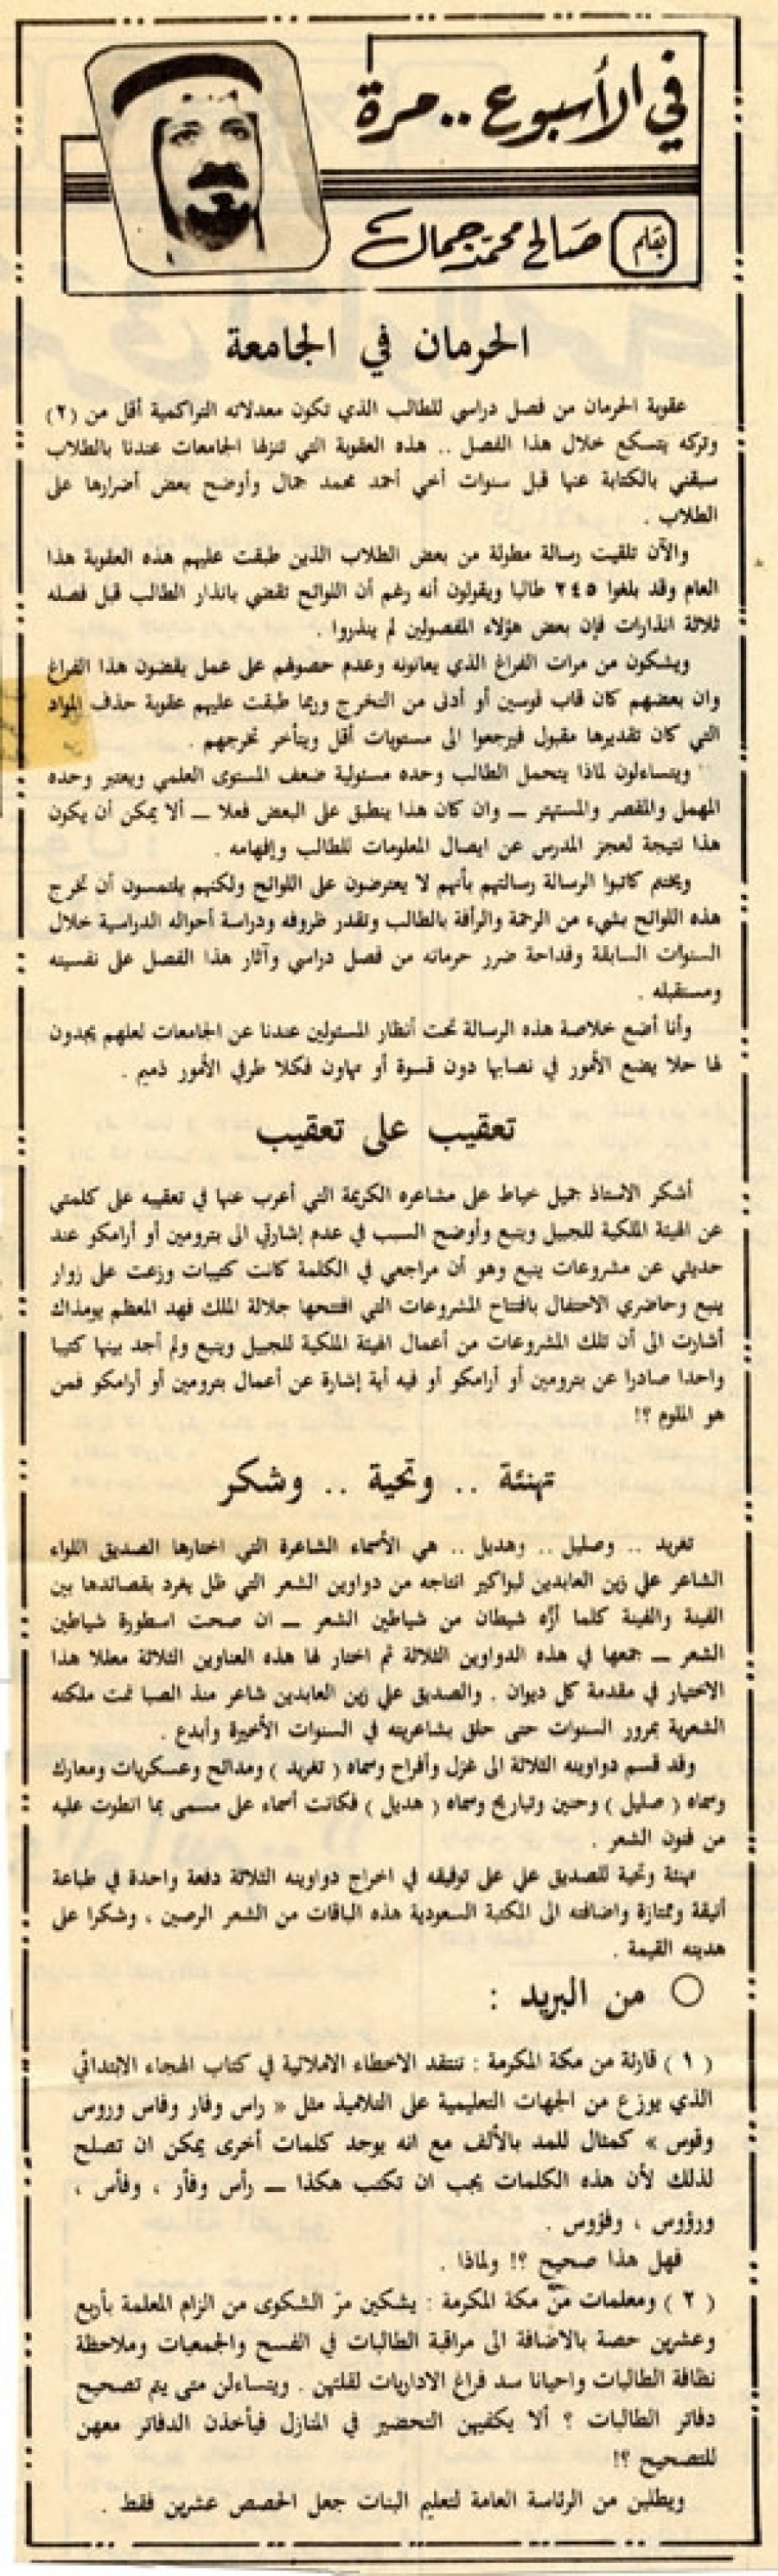 في الأسبوع .. مرة
بقلم صالح محمد جمال
الحرمان في الجامعة
عقوبة الحرمان من فصل دراسي للطالب الذي تكون معدلاته التراكمية أقل من (٢)
وتركه يتسكع خلال هذا الفصل .. هذه العقوبة التي تنزلها الجامعات عندنا بالطلاب
سبقني بالكتابة عنها قبل سنوات أخي أحمد محمد جمال وأوضح بعض أضرارها على
الطلاب .
والآن تلقيت رسالة مطولة من بعض الطلاب الذين طبقت عليهم هذه العقوبة هذا
العام وقد بلغوا ٢٤٥ طالبا ويقولون أنه رغم أن اللوائح تقضي بانذار الطالب قبل فصله
ثلاثة انذارات فإن بعض هؤلاء المفصولين لم ينذروا .
ويشكون من مرات الفراغ الذي يعانونه وعدم حصولهم على عمل يقضون هذا الفراغ
وان بعضهم كان قاب قوسين أو أدنى من التخرج وربما طبقت عليهم عقوبة حذف المواد
التي كان تقديرها مقبول فيرجعوا الى مستويات أقل ويتأخر تخرجهم .
ويتساءلون لماذا يتحمل الطالب وحده مسئولية ضعف المستوى العلمي ويعتبر وحده
المهمل والمقصر والمستهتر ــ وان كان هذا ينطبق على البعض فعلا ــ ألا يمكن أن يكون
هذا نتيجة لعجز المدرس عن ايصال المعلومات للطالب وإفهامه .
ويختم كاتبوا الرسالة رسالتهم بأنهم لا يعترضون على اللوائح ولكنهم يلتمسون أن تخرج
هذه اللوائح بشيء من الرحمة والرأفة بالطالب وتقدر ظروفه ودراسة أحواله الدراسية خلال
السنوات السابقة وفداحة ضرر حرمانه من فصل دراسي وآثار هذا الفصل على نفسيته
ومستقبله .
وأنا أضع خلاصة هذه الرسالة تحت أنظار المسئولين عندنا عن الجامعات لعلهم يجدون
لها حلا يضع الأمور في نصابها دون قسوة أو تهاون فكلا طرفي الأمور ذميم .
تعقيب على تعقيب
أشكر الاستاذ جميل خياط على مشاعره الكريمة التي أعرب عنها في تعقيبه على كلمتي
عن الهيئة الملكية للجبيل وينبع وأوضح السبب في عدم إشارتي الى بترومين أو أرامكو عند
حديثي عن مشروعات ينبع وهو أن مراجعي في الكلمة كانت كتيبات وزعت على زوار
ينبع وحاضري الاحتفال بافتتاح المشروعات التي افتتحها جلالة الملك فهد المعظم يومذاك
أشارت الى أن تلك المشروعات من أعمال الهيئة الملكية للجبيل وينبع ولم أجد بينها كتيبا
واحدا صادرا عن بترومين أو أرامكو أو فيه أية إشارة عن أعمال بترومين أو أرامكو فمن
هو الملوم ؟!
تهنئة .. وتحية .. وشكر
تغريد .. وصليل .. وهديل .. هي الأسماء الشاعرة التي اختارها الصديق اللواء
الشاعر علي زين العابدين لبواكير انتاجه من دواوين الشعر التي ظل يغرد بقصائدها بين
الفينة والفينة كلما أزّه شيطان من شياطين الشعر ــ ان صحت اسطورة شياطين
الشعر ــ جمعها في هذه الدواوين الثلاثة ثم اختار لها هذه العناوين الثلاثة معللا هذا
الاختيار في مقدمة كل ديوان . والصديق علي زين العابدين شاعر منذ الصبا نمت ملكته
الشعرية بمرور السنوات حتى حلق بشاعريته في السنوات الأخيرة وأبدع .
وقد قسم دواوينه الثلاثة الى غزل وأفراح وسماه ( تغريد ) ومدائح وعسكريات ومعارك
وسماه ( صليل ) وحنين وتباريح وسماه ( هديل ) فكانت أسماء على مسمى بما انطوت عليه
من فنون الشعر .
تهنئة وتحية للصديق علي على توفيقه في اخراج دواوينه الثلاثة دفعة واحدة في طباعة
أنيقة وممتازة واضافته الى المكتبة السعودية هذه الباقات من الشعر الرصين ، وشكرا على
هديته القيمة .
○ من البريد :
( ١ ) قارئة من مكة المكرمة : تنتقد الاخطاء الاملائية في كتاب الهجاء الابتدائي
الذي يوزع من الجهات التعليمية على التلاميذ مثل « راس وفار وفاس وروس
وفوس » كمثال للمد بالألف مع انه يوجد كلمات أخرى يمكن ان تصلح
لذلك لأن هذه الكلمات يجب ان تكتب هكذا ــ رأس وفأر ، وفأس ،
ورؤوس ، وفؤوس .
فهل هذا صحيح ؟! ولماذا .
( ٢ ) ومعلمات من مكة المكرمة : يشكين مرّ الشكوى من الزام المعلمة بأربع
وعشرين حصة بالاضافة الى مراقبة الطالبات في الفسح والجمعيات وملاحظة
نظافة الطالبات واحيانا سد فراغ الاداريات لقلتهن . ويتساءلن متى يتم تصحيح
دفاتر الطالبات ؟ ألا يكفيهن التحضير في المنازل فيأخذن الدفاتر معهن
للتصحيح ؟!
ويطلبن من الرئاسة العامة لتعليم البنات جعل الحصص عشرين فقط .